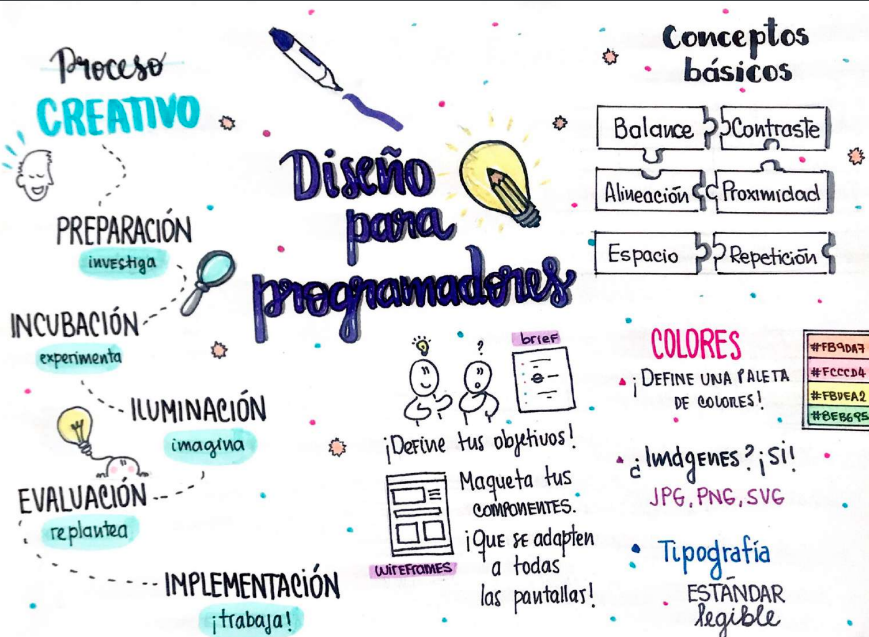 Proceso
CREATIVO
PREPARACIÓN
investiga
INCUBACIÓN
experimenta
ILUMINACIÓN
imagina
EVALUACIÓN
replantea
IMPLEMENTACIÓN
¡trabaja!
Diseño
para
programadores
brief
?
¡Define tus objetivos!
Maqueta tus
COMPONENTES.
¡QUE SE adapten
a todas
las pantallas!
WIREFRAMES
Conceptos
básicos
Balance
Contraste
Alineación
Proximidad
Espacio
Repetición
COLORES
¡DEFINE UNA PALETA
DE COLORES!
#FB9DA7
#FCCCD4
#FBDEA2
#8EB695
¿Imágenes? ¡SI!
JPG, PNG, SVG
Tipografía
ESTÁNDAR
legible